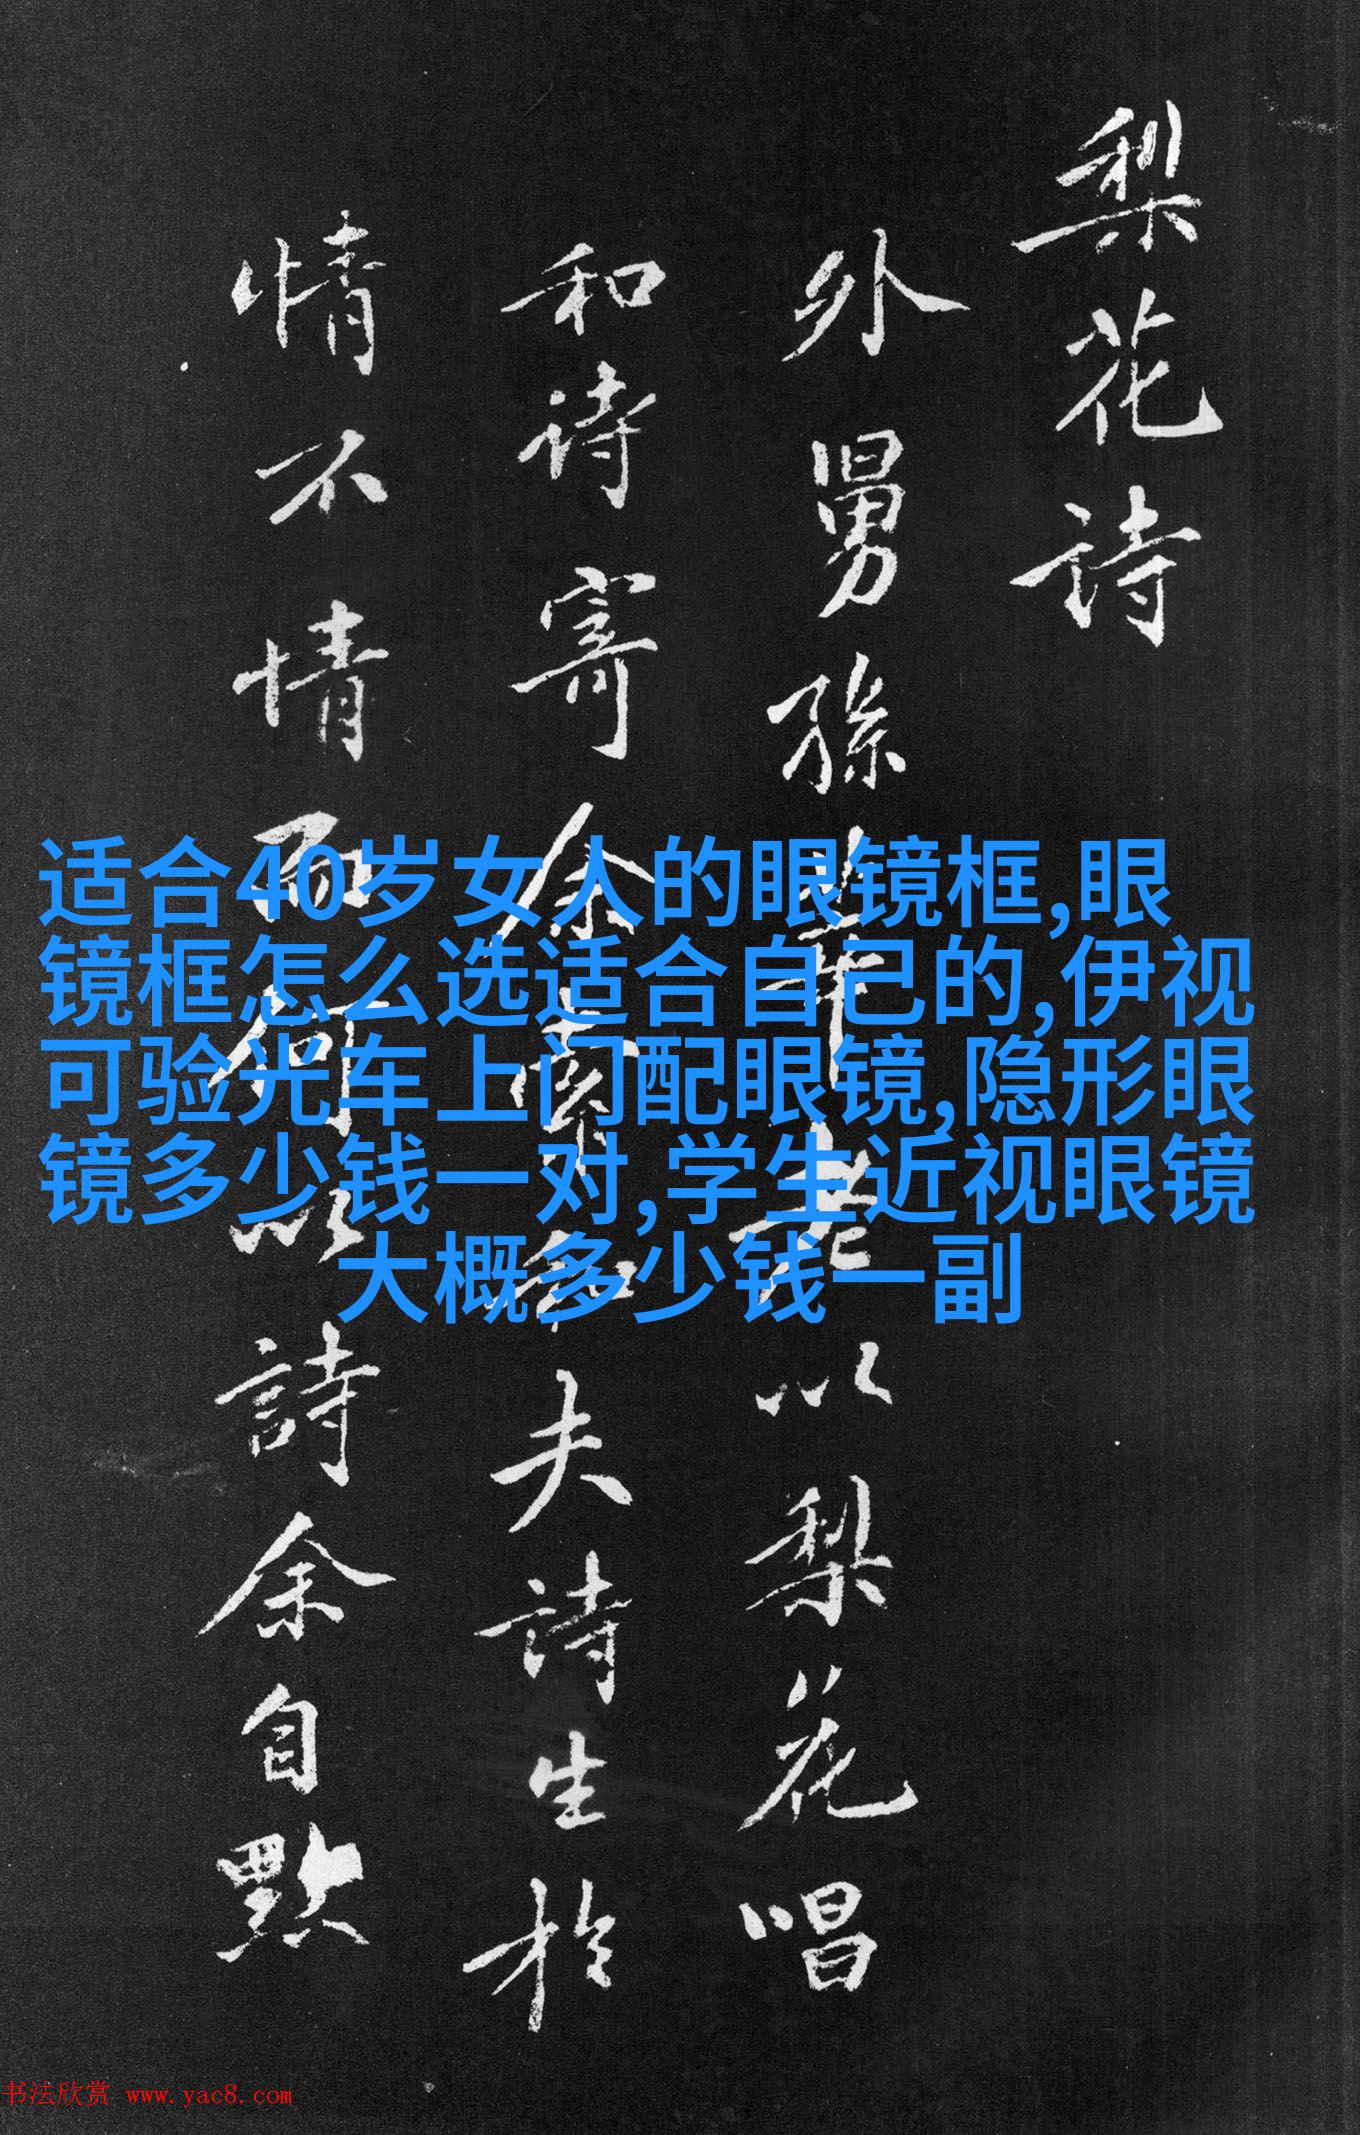 梨花诗
外舅孙莘老以梨花唱
和诗寄余索和夫诗生於
情不情而何以詩余自點
适合40岁女人的眼镜框,眼
镜框怎么选适合自己的,伊视
可验光车上门配眼镜,隐形眼
镜多少钱一对,学生近视眼镜
大概多少钱一副
书法欣赏 www.yac8.com